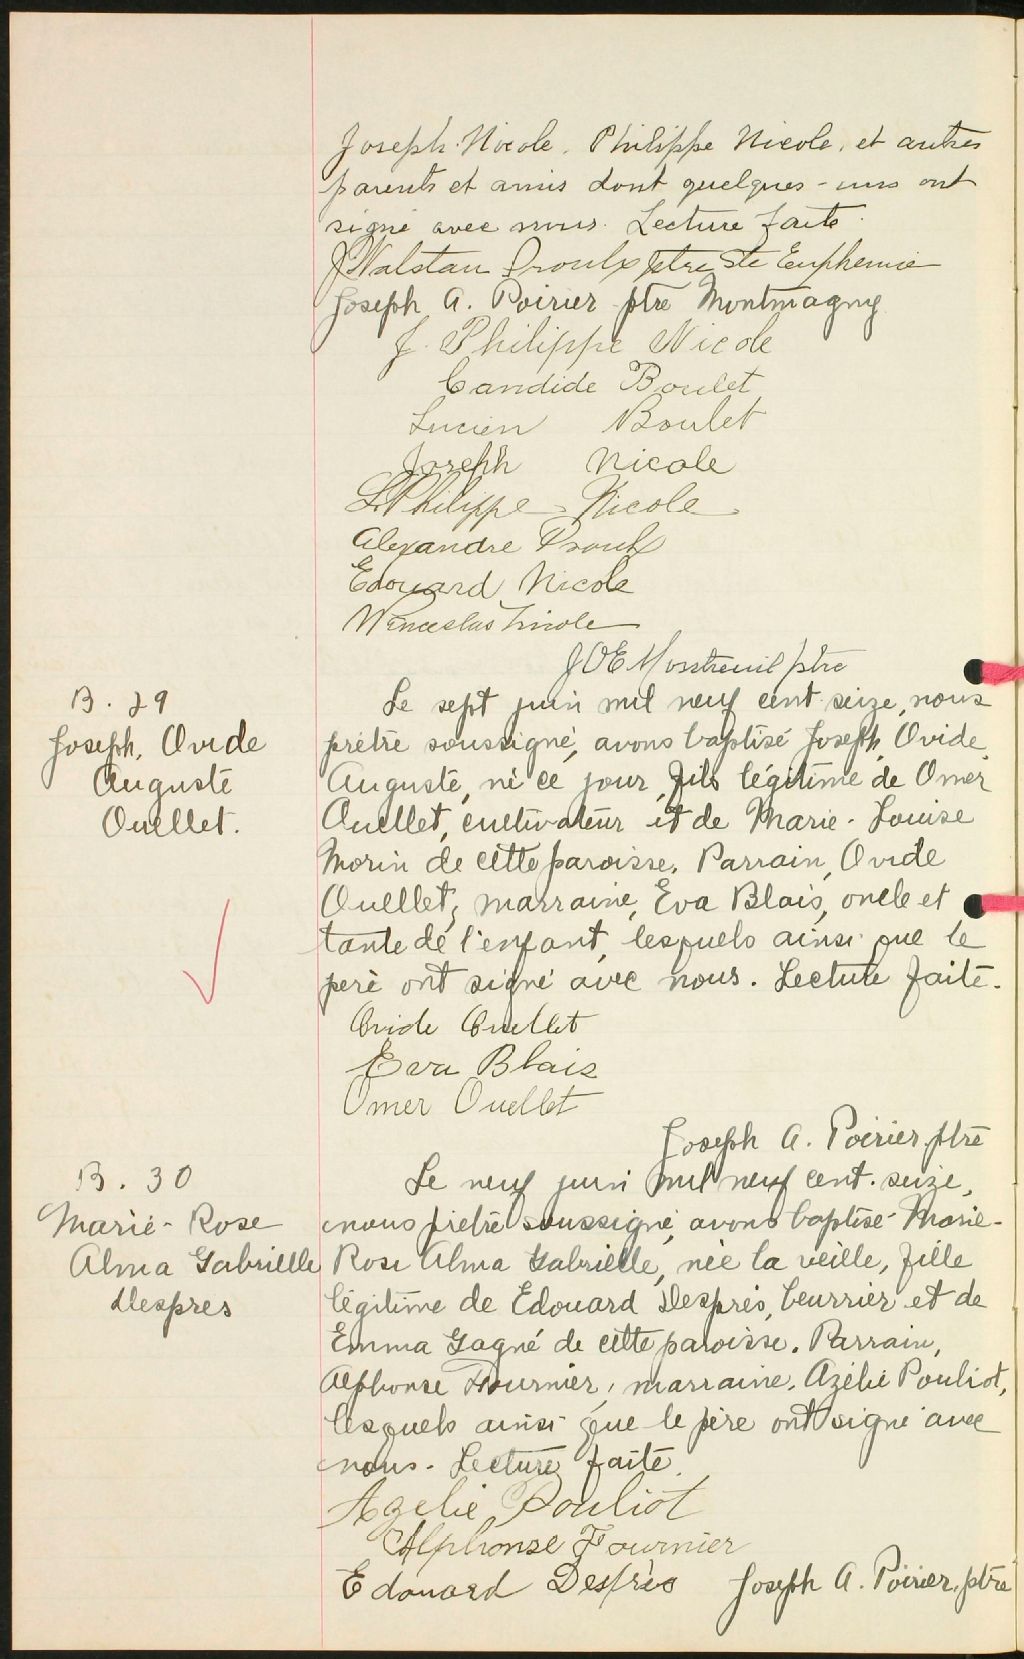 Joseph Nicole, Philippe Nicole, et autres
parents et amis dont quelques-uns ont
signé avec nous. Lecture faite.
J Walstan Proulx ptre Ste Euphemie
Joseph A. Poirier ptre Montmagny
J. Philippe Nicole
Candide Boulet
Lucien Boulet
Joseph Nicole
L. Philippe Nicole
Alexandre Proulx
Edouard Nicole
Wenceslas
J O E Montreuil ptre
B. 29
Joseph, Ovide
Auguste
Ouellet.
Le sept juin mil neuf cent seize, nous
prêtre soussigné, avons baptisé Joseph, Ovide
Auguste, né ce jour, fils légitime de Omer
Ouellet, cultivateur et de Marie-Louise
Morin de cette paroisse. Parrain, Ovide
Ouellet; marraine, Eva Blais, oncle et
tante de l'enfant, lesquels ainsi que le
père ont signé avec nous. Lecture faite.
Ovide Ouellet
Eva Blais
Omer Ouellet
Joseph A. Poirier ptre
B. 30
Marie-Rose
Alma Gabrielle
Despres
Le neuf juin mil neuf cent seize,
nous prêtre soussigné, avons baptisé Marie-
Rose Alma Gabrielle, née la veille, fille
légitime de Edouard Desprès, beurrier et de
Emma Gagné de cette paroisse. Parrain,
Alphonse Fournier, marraine, Azélie Pouliot,
lesquels ainsi que le père ont signé avec
nous. Lecture faite.
Azelie Pouliot
Alphonse Fournier
Edouard Desprès Joseph A. Poirier, ptre